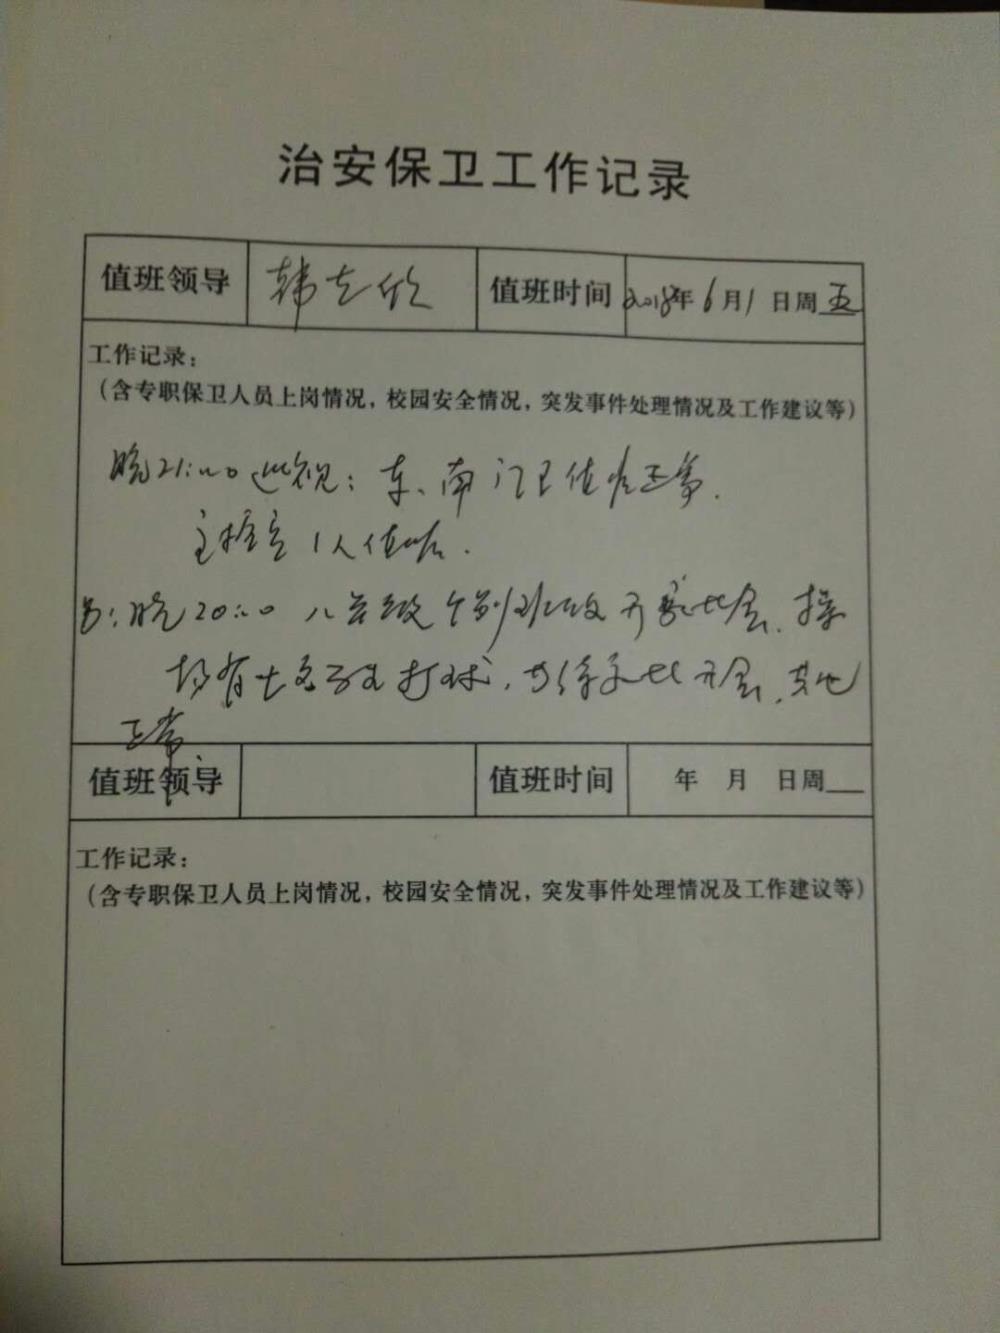 治安保卫工作记录
值班领导 韩 值班时间 2018年6月1日周五
工作记录：
（含专职保卫人员上岗情况，校园安全情况，突发事件处理情况及工作建议等）
晚21:00巡视：东、南门卫值岗正常.
主控室1人值岗.
另：晚20:00 八年级个别班级开家长会、操
场有 打球, 家长开会, 其他
正常、
值班领导 值班时间 年 月 日周
工作记录：
（含专职保卫人员上岗情况，校园安全情况，突发事件处理情况及工作建议等）